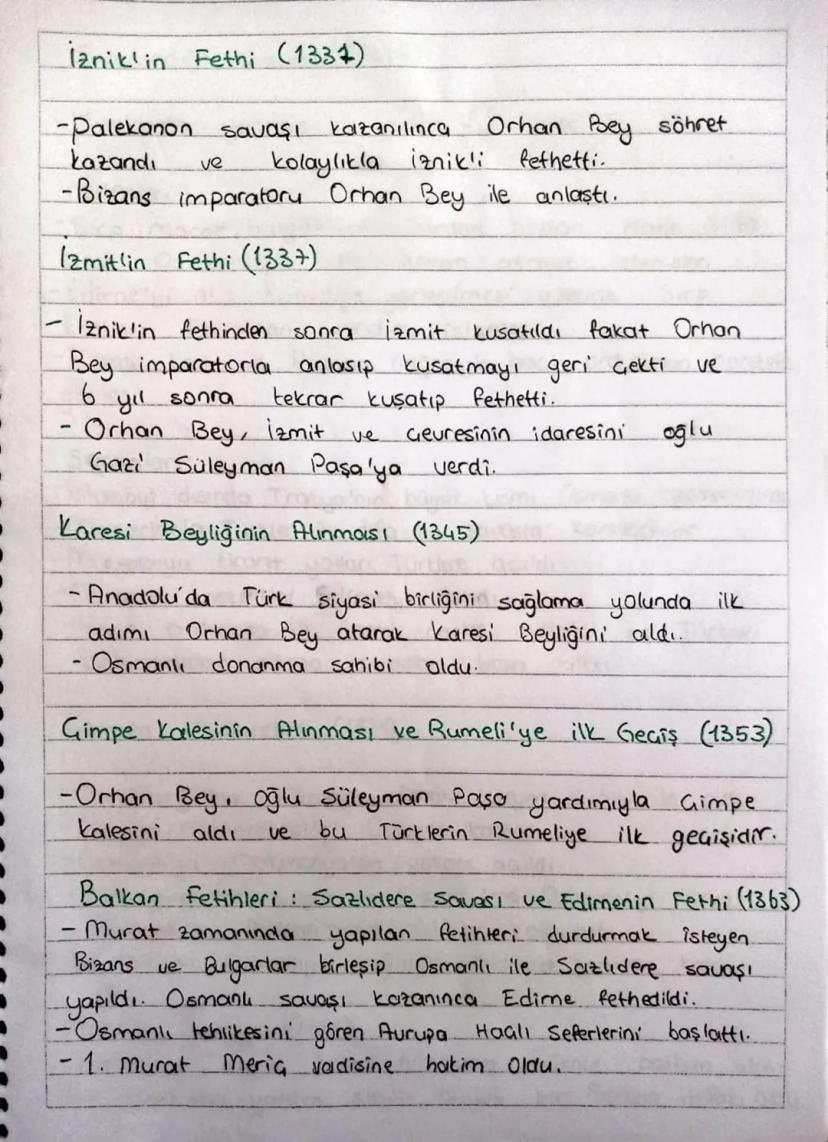 İznik'in Fethi (1331)
-Palekanon savaşı kazanılınca Orhan Bey şöhret
kazandı ve kolaylıkla iznik'i fethetti.
-Bizans imparatoru Orhan Bey ile anlaştı.
İzmit'in Fethi (1337)
- İznik'in fethinden sonra izmit kuşatıldı fakat Orhan
Bey imparatorla anlaşıp kuşatmayı geri çekti ve
6 yıl sonra tekrar kuşatıp fethetti.
- Orhan Bey, izmit ve çevresinin idaresini oğlu
Gazi Süleyman Paşa'ya verdi.
Karesi Beyliğinin Alınması (1345)
- Anadolu'da Türk siyasi birliğini sağlama yolunda ilk
adımı Orhan Bey atarak Karesi Beyliğini aldı.
- Osmanlı donanma sahibi oldu.
Çimpe Kalesinin Alınması ve Rumeli'ye ilk Geçiş (1353)
-Orhan Bey, oğlu Süleyman Paşa yardımıyla Çimpe
kalesini aldı ve bu Türklerin Rumeliye ilk geçişidir.
Balkan Fetihleri : Sazlıdere Savaşı ve Edirnenin Fethi (1363)
- Murat zamanında yapılan fetihleri durdurmak isteyen
Bizans ve Bulgarlar birleşip Osmanlı ile Sazlıdere savaşı
yapıldı. Osmanlı savaşı kazanınca Edirne fethedildi.
-Osmanlı tehlikesini gören Avrupa Haçlı Seferlerini başlattı.
- 1. Murat Meriç vadisine hakim oldu.